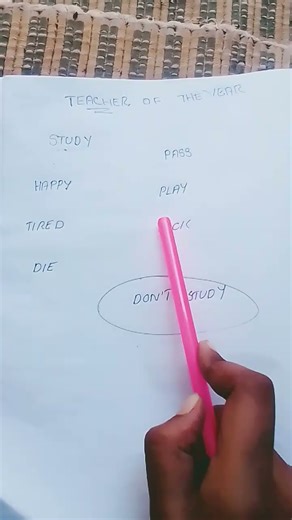 TEACHER OF THE YEAR
STUDY
PASS
HAPPY
PLAY
TIRED
DIE
DON'T STUDY